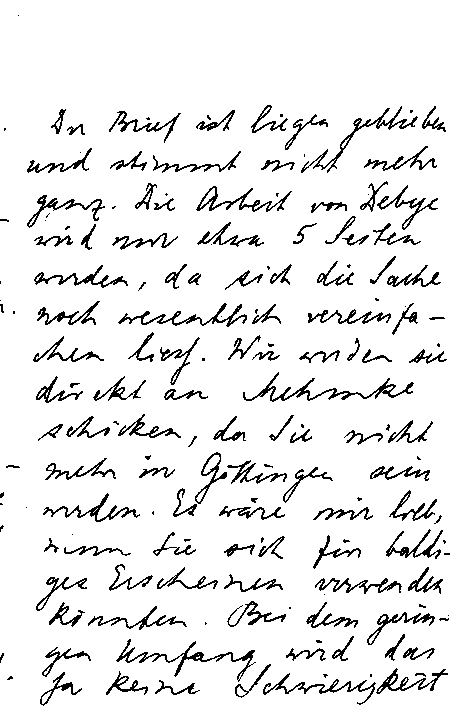 Der Brief ist liegen geblieben
und stimmt nicht mehr
ganz. Die Arbeit von Debye
wird nur etwa 5 Seiten
werden, da sich die Sache
noch wesentlich vereinfa-
chen liess. Wir werden sie
direkt an Mehmke
schicken, da Sie nicht
mehr in Göttingen sein
werden. Es wäre mir lieb,
wenn Sie sich für baldi-
ges Erscheinen verwenden
könnten. Bei dem gerin-
gen Umfang wird das
ja keine Schwierigkeit